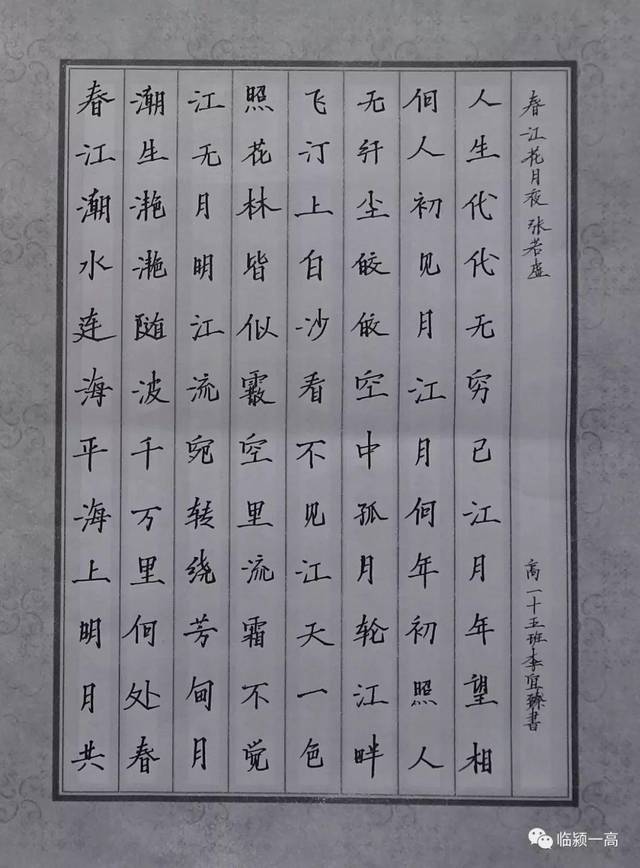 春江潮水连海平海上明月共
潮生滟滟随波千万里何处春
江无月明江流宛转绕芳甸月
照花林皆似霰空里流霜不觉
飞汀上白沙看不见江天一色
无纤尘皎皎空中孤月轮江畔
何人初见月江月何年初照人
人生代代无穷已江月年望相
春江花月夜 张若虚
高一十五班李宜臻书
临颍一高